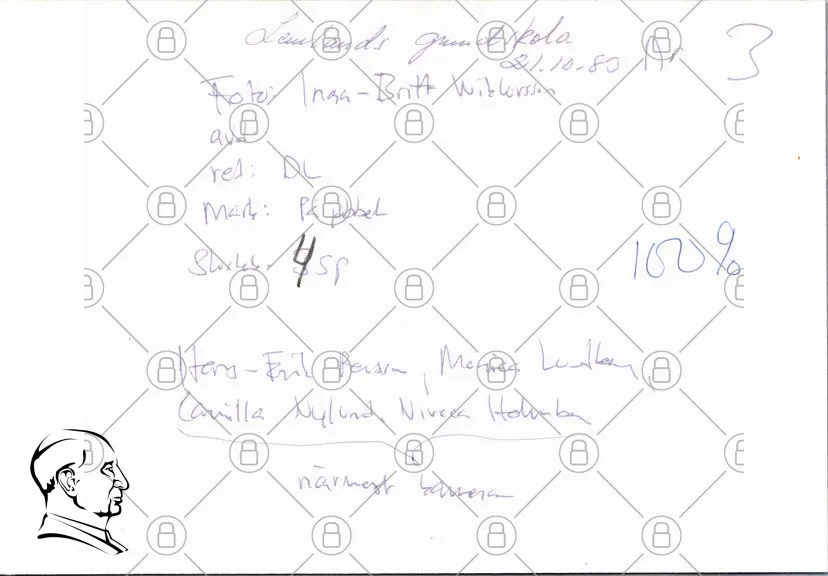 Lemlands grundskola
21.10-80 Nr 3
Foto: Inga-Britt Wiklorsson
avd
red: DL
Mark: På pobel
4 sp
100%
Hans-Erik Persson, Monica Lundberg,
Camilla Nylund, Holmberg
närmast kameran